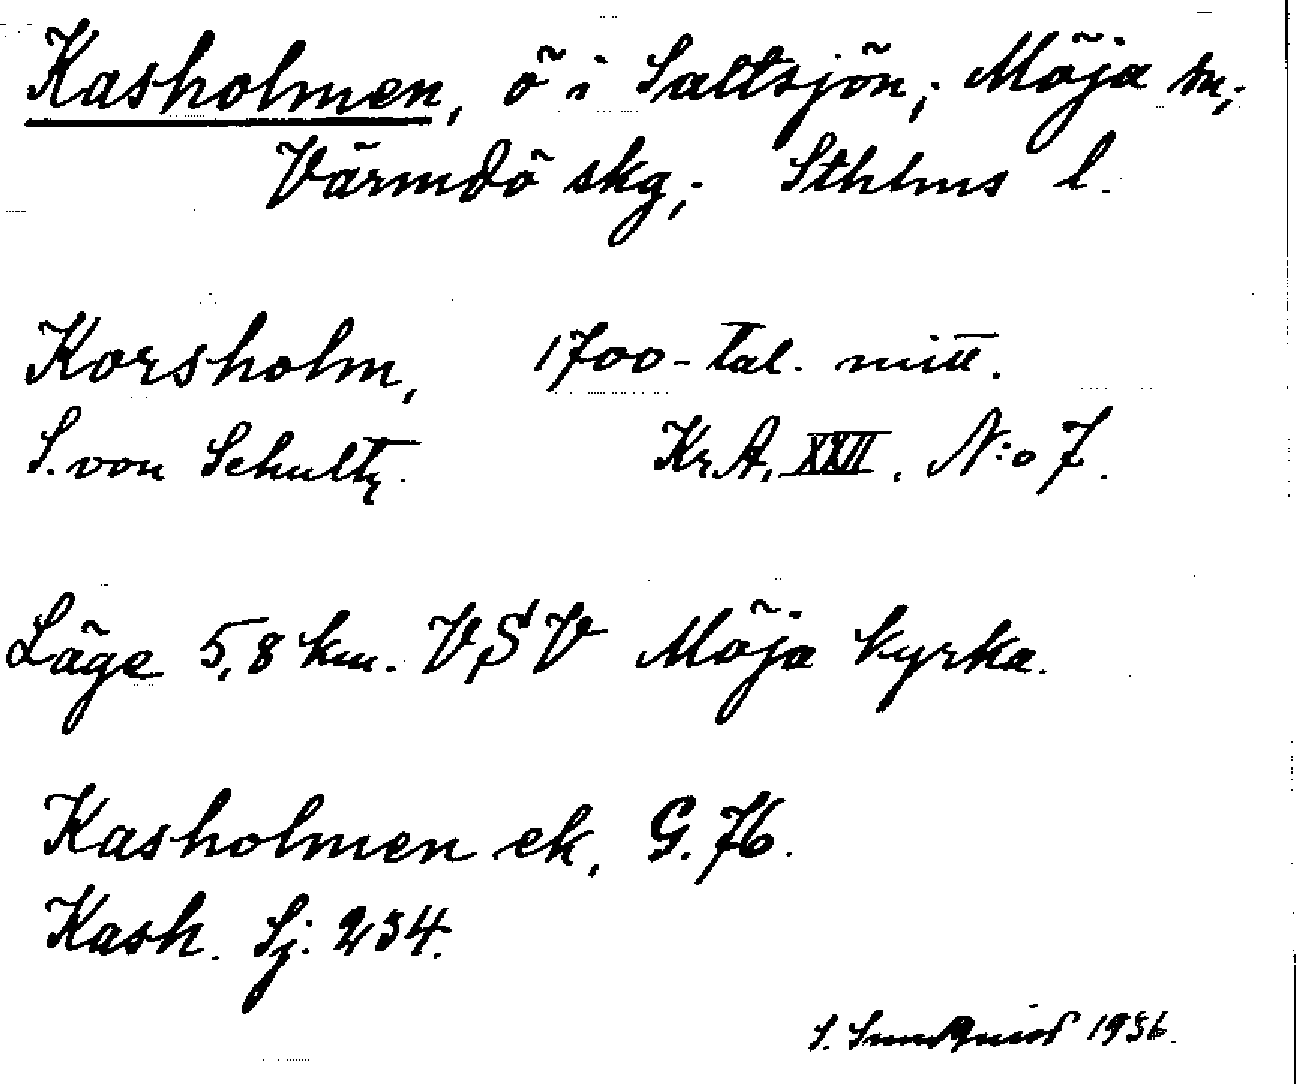 Kasholmen, ö i Saltsjön; Möja sn;
Värmdö skg; Sthlms l.
Korsholm, 1700-tal. mitt.
S. von Schultz. Kr. A. XXII. N:o 7.
Läge 5,8 km. VSV Möja kyrka.
Kasholmen ek, G. 76.
Kash. Sj. 234.
S. Sundquist 1936.